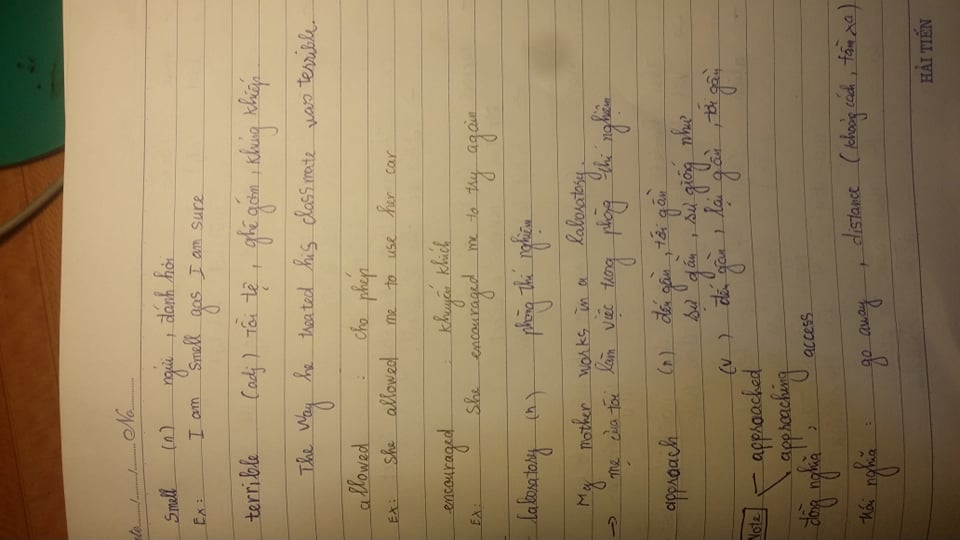 No
Smell (n) ngửi, đánh hơi
Ex: I am smell gas I am sure
terrible (adj) Tồi tệ, ghê gớm, khủng khiếp.
The way he treated his classmate was terrible.
allowed : cho phép
Ex: She allowed me to use her car
encouraged : khuyến khích
Ex: She encouraged me to try again
laboratory (n) phòng thí nghiệm
My mother works in a laboratory.
→ mẹ của tôi làm việc trong phòng thí nghiệm
approach (n) đến gần, tới gần
sự gần, sự giống như
(v) đến gần, lại gần, tới gần
Note approached
approaching
đồng nghĩa ; access
trái nghĩa : go away, distance (khoảng cách, tầm xa)
HẢI TIẾN